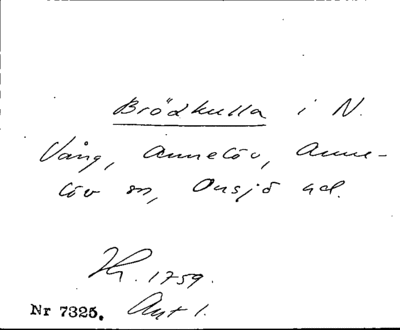 Brödkulla i N.
Vång, Annelöv, Anne-
löv sn, Onsjö hd.
Hr. 1759.
Nr 7325. Akt 1.